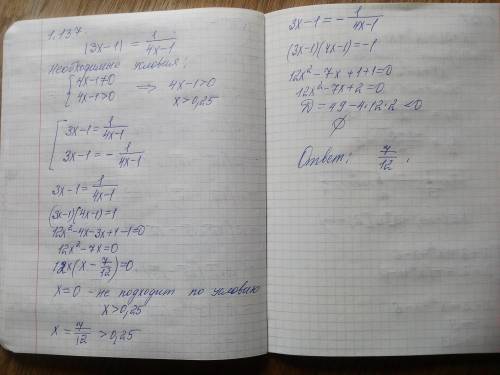 1.137
|3x-1| = 1/(4x-1)
Необходимые условия:
{ 4x-1≠0
{ 4x-1>0 ⇒ 4x-1>0
x>0,25
[ 3x-1 = 1/(4x-1)
[ 3x-1 = - 1/(4x-1)
3x-1 = 1/(4x-1)
(3x-1)(4x-1)=1
12x²-4x-3x+1-1=0
12x²-7x=0
12x(x - 7/12)=0
x=0 - не подходит по условию
x>0,25
x = 7/12 >0,25
3x-1 = - 1/(4x-1)
(3x-1)(4x-1)=-1
12x²-7x+1+1=0
12x²-7x+2=0
D = 49-4·12·2 <0
∅
Ответ: 7/12.